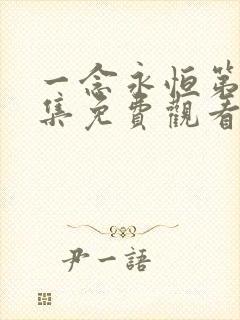 一念永恒第
集免費觀看
尹一語